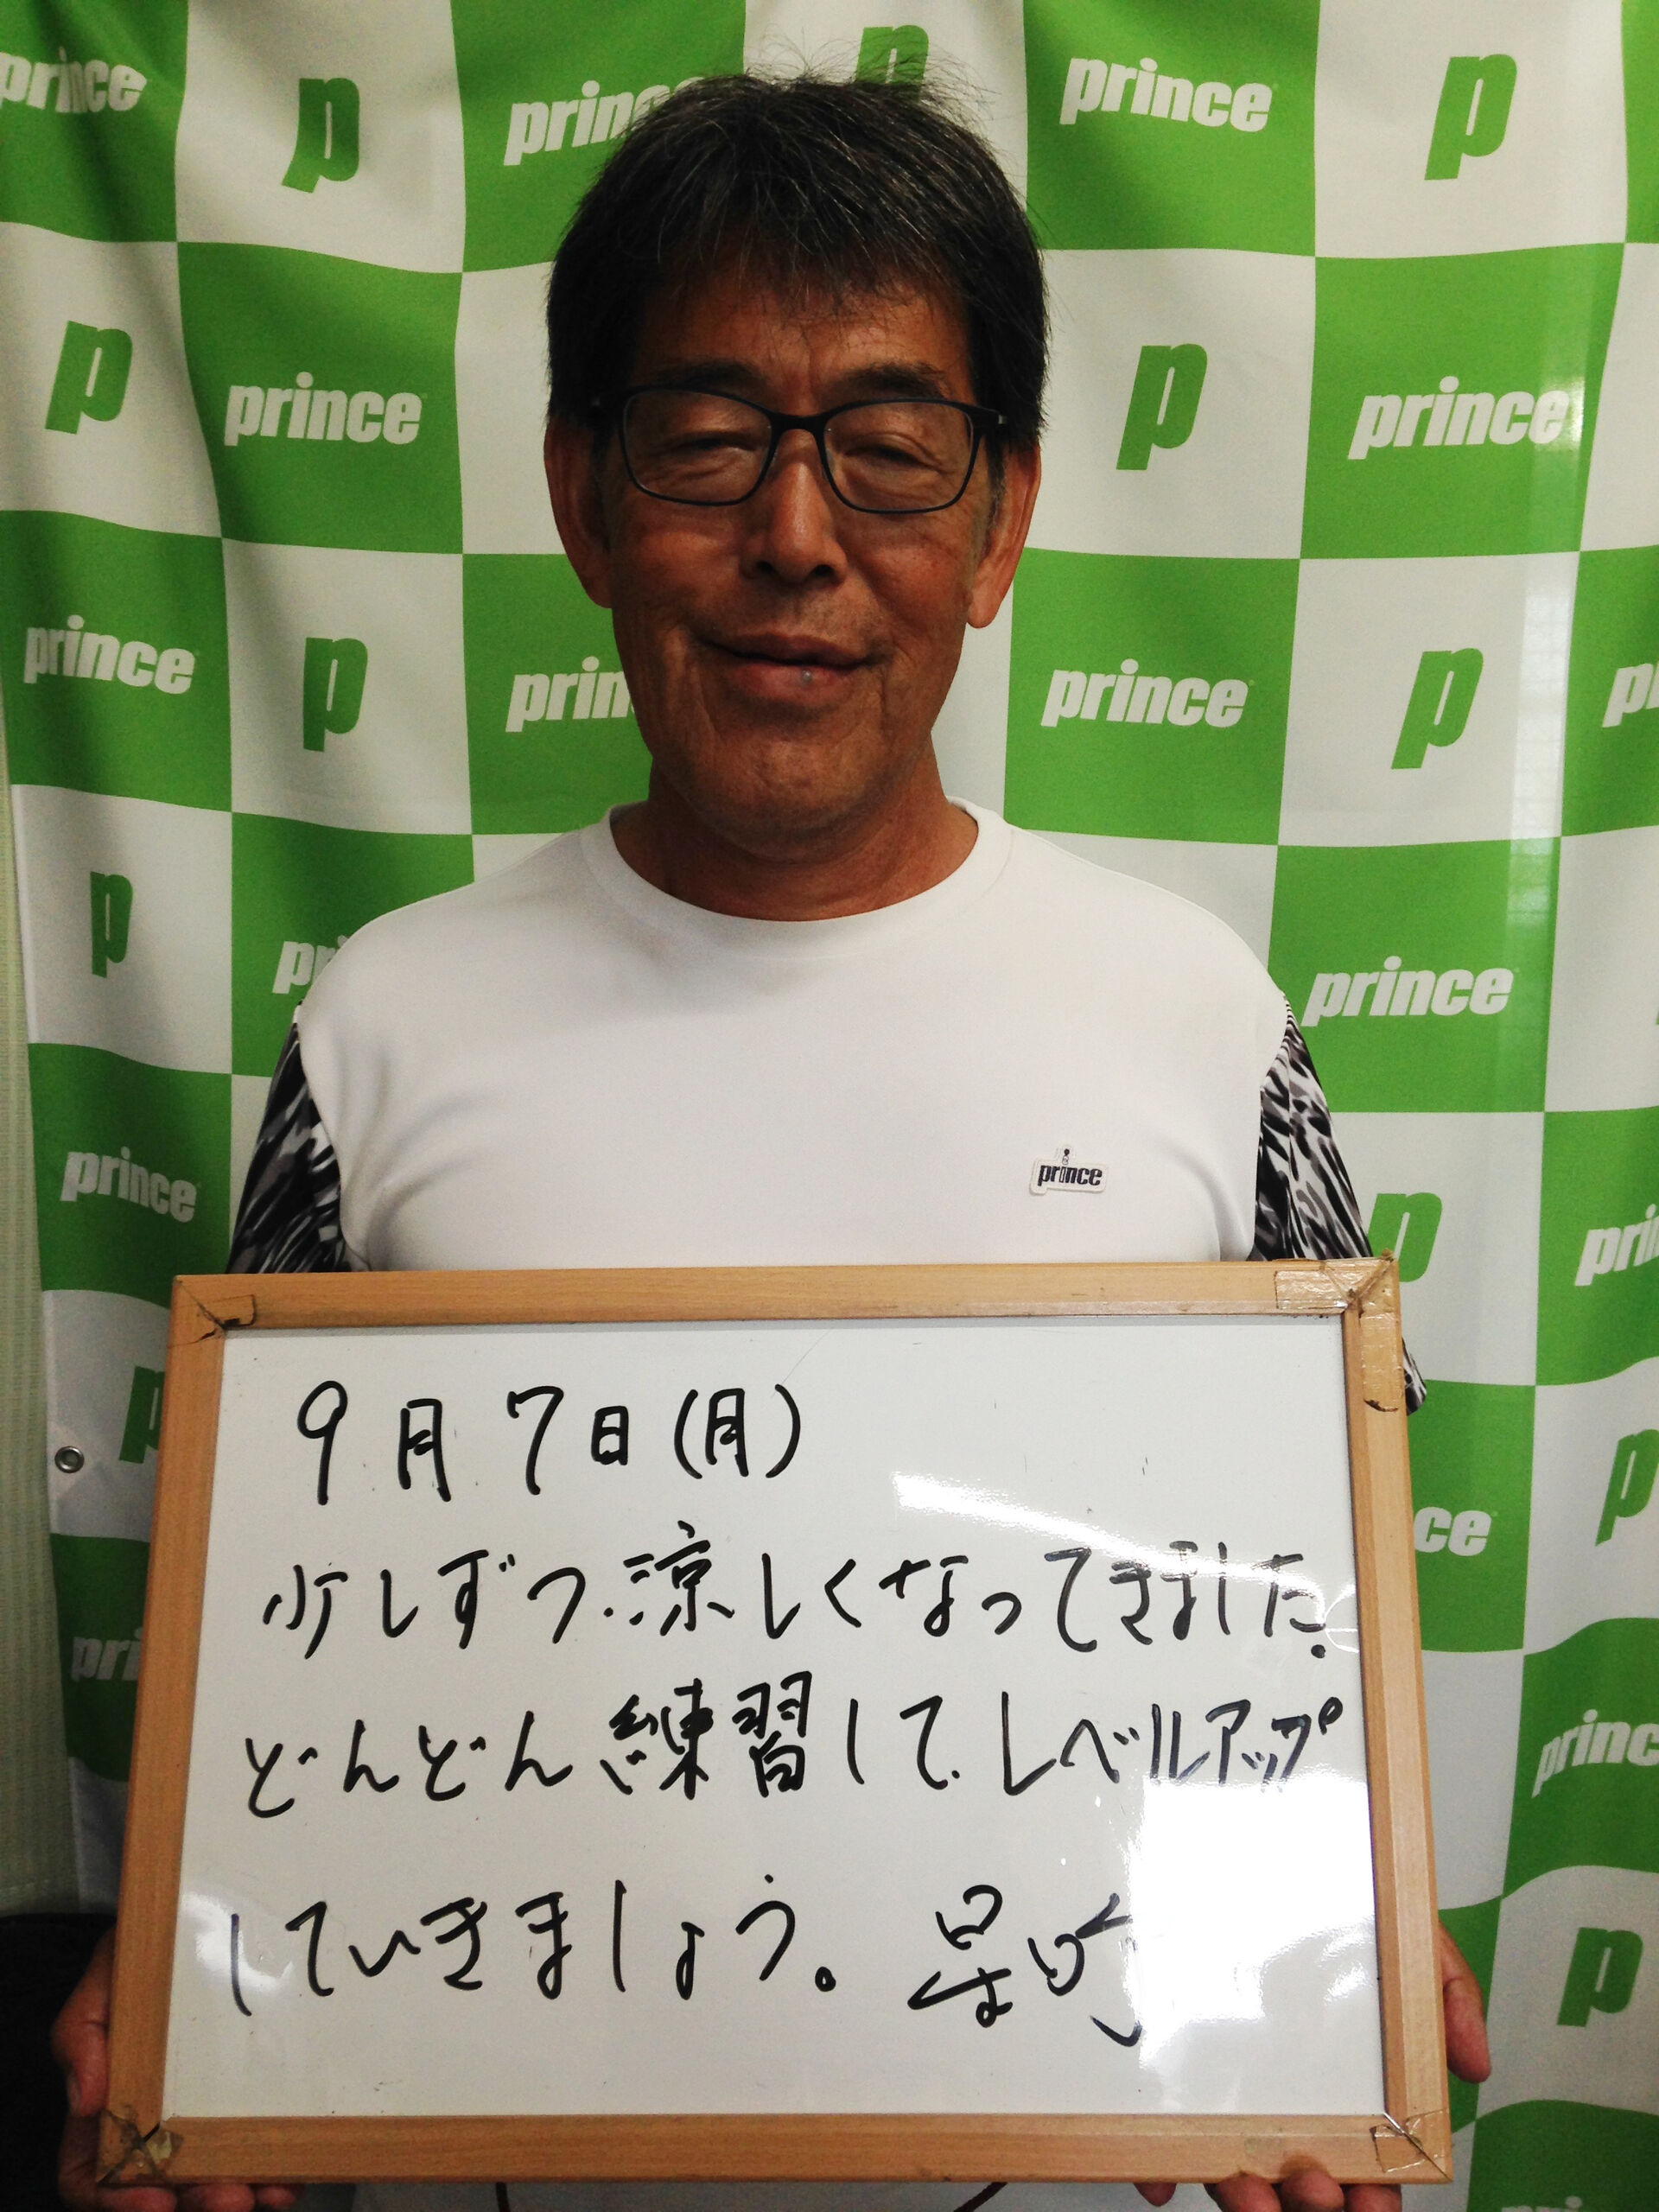 prince p prince p prince p
p prince p prince
prince p prin prince p
p prince
prince p
prince
prince
9月7日(月)
少しずつ.涼しくなってきました.
どんどん練習して.レベルアップ
していきましょう。